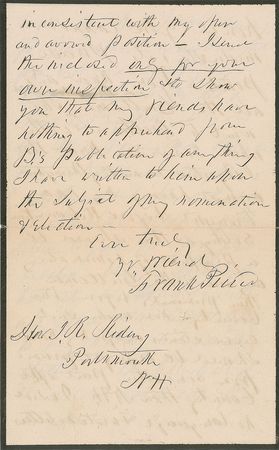 inconsistent with my open
and avowed position — I send
the inclosed only for your
own inspection to show
you that my friends have
nothing to apprehend from
B's publication of anything
I have written to him upon
the subject of my nomination
& election —
Ever truly
Yr friend
Frank Pierce
Hon J. R. Reding
Portsmouth
NH